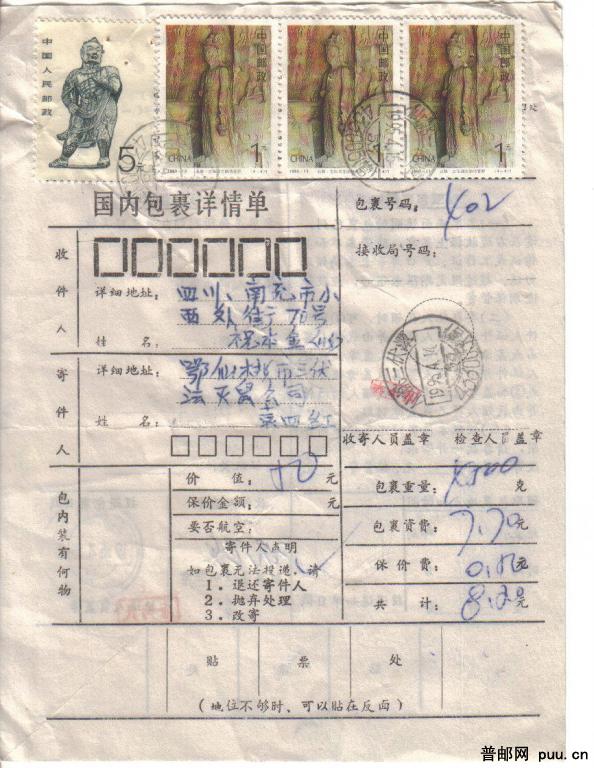 中国人民邮政
5元
中国邮政
CHINA
1元
中国邮政
CHINA
1元
中国邮政
CHINA
1元
处
国内包裹详情单
包裹号码:
402
接收局号码:
收件人
详细地址:
四川、南充市小
西外街78号
姓名:
寄件人
详细地址:
鄂仙桃市三伏
法灭鼠公司
姓名:
收寄人员盖章
检查人员盖章
包内装有何物
价值: 50 元
保价金额: 元
要否航空:
寄件人声明
如包裹无法投递,请
1.退还寄件人
2.抛弃处理
3.改寄
包裹重量: 克
包裹资费: 7.70 元
保价费: 元
共计: 8.20 元
贴票处
(地位不够时、可以贴在反面)
普邮网 puu.cn